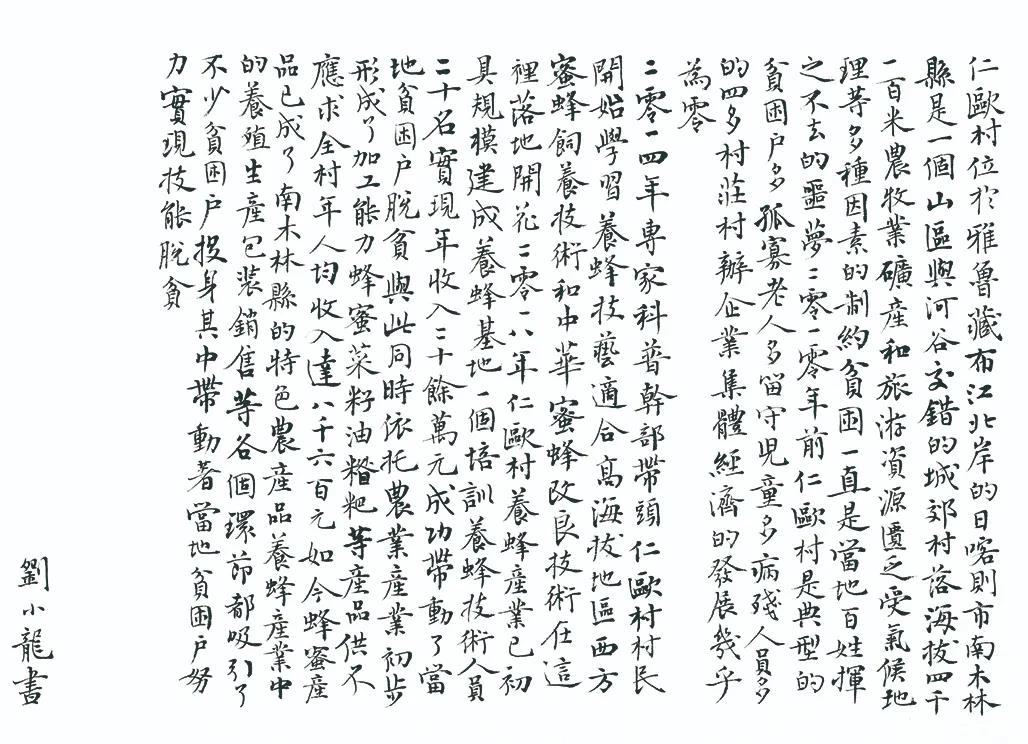 仁歐村位於雅魯藏布江北岸的日喀則市南木林
縣是一個山區與河谷交錯的城郊村落海拔四千
一百米農牧業礦産和旅游資源匱乏受氣候地
理等多種因素的制約貧困一直是當地百姓揮
之不去的噩夢二零一零年前仁歐村是典型的
貧困户多孤寡老人多留守児童多病殘人員多
的四多村莊村辦企業集體經濟的發展幾乎
為零
二零一四年専家科普幹部帶頭仁歐村村民
開始學習養蜂技藝適合高海拔地區西方
蜜蜂飼養技術和中華蜜蜂改良技術在這
裡落地開花二零一八年仁歐村養蜂産業已初
具規模建成養蜂基地一個培訓養蜂技術人員
二十名實現年收入二十餘萬元成功帶動了當
地貧困户脱貧與此同時依托農業産業初步
形成了加工能力蜂蜜菜籽油糌粑等産品供不
應求全村年人均收入達八千六百元如今蜂蜜産
品已成了南木林縣的特色農産品養蜂産業中
的養殖生産包装銷售等各個環節都吸引了
不少貧困户投身其中帶動著當地貧困户努
力實現技能脱貧
劉小龍書